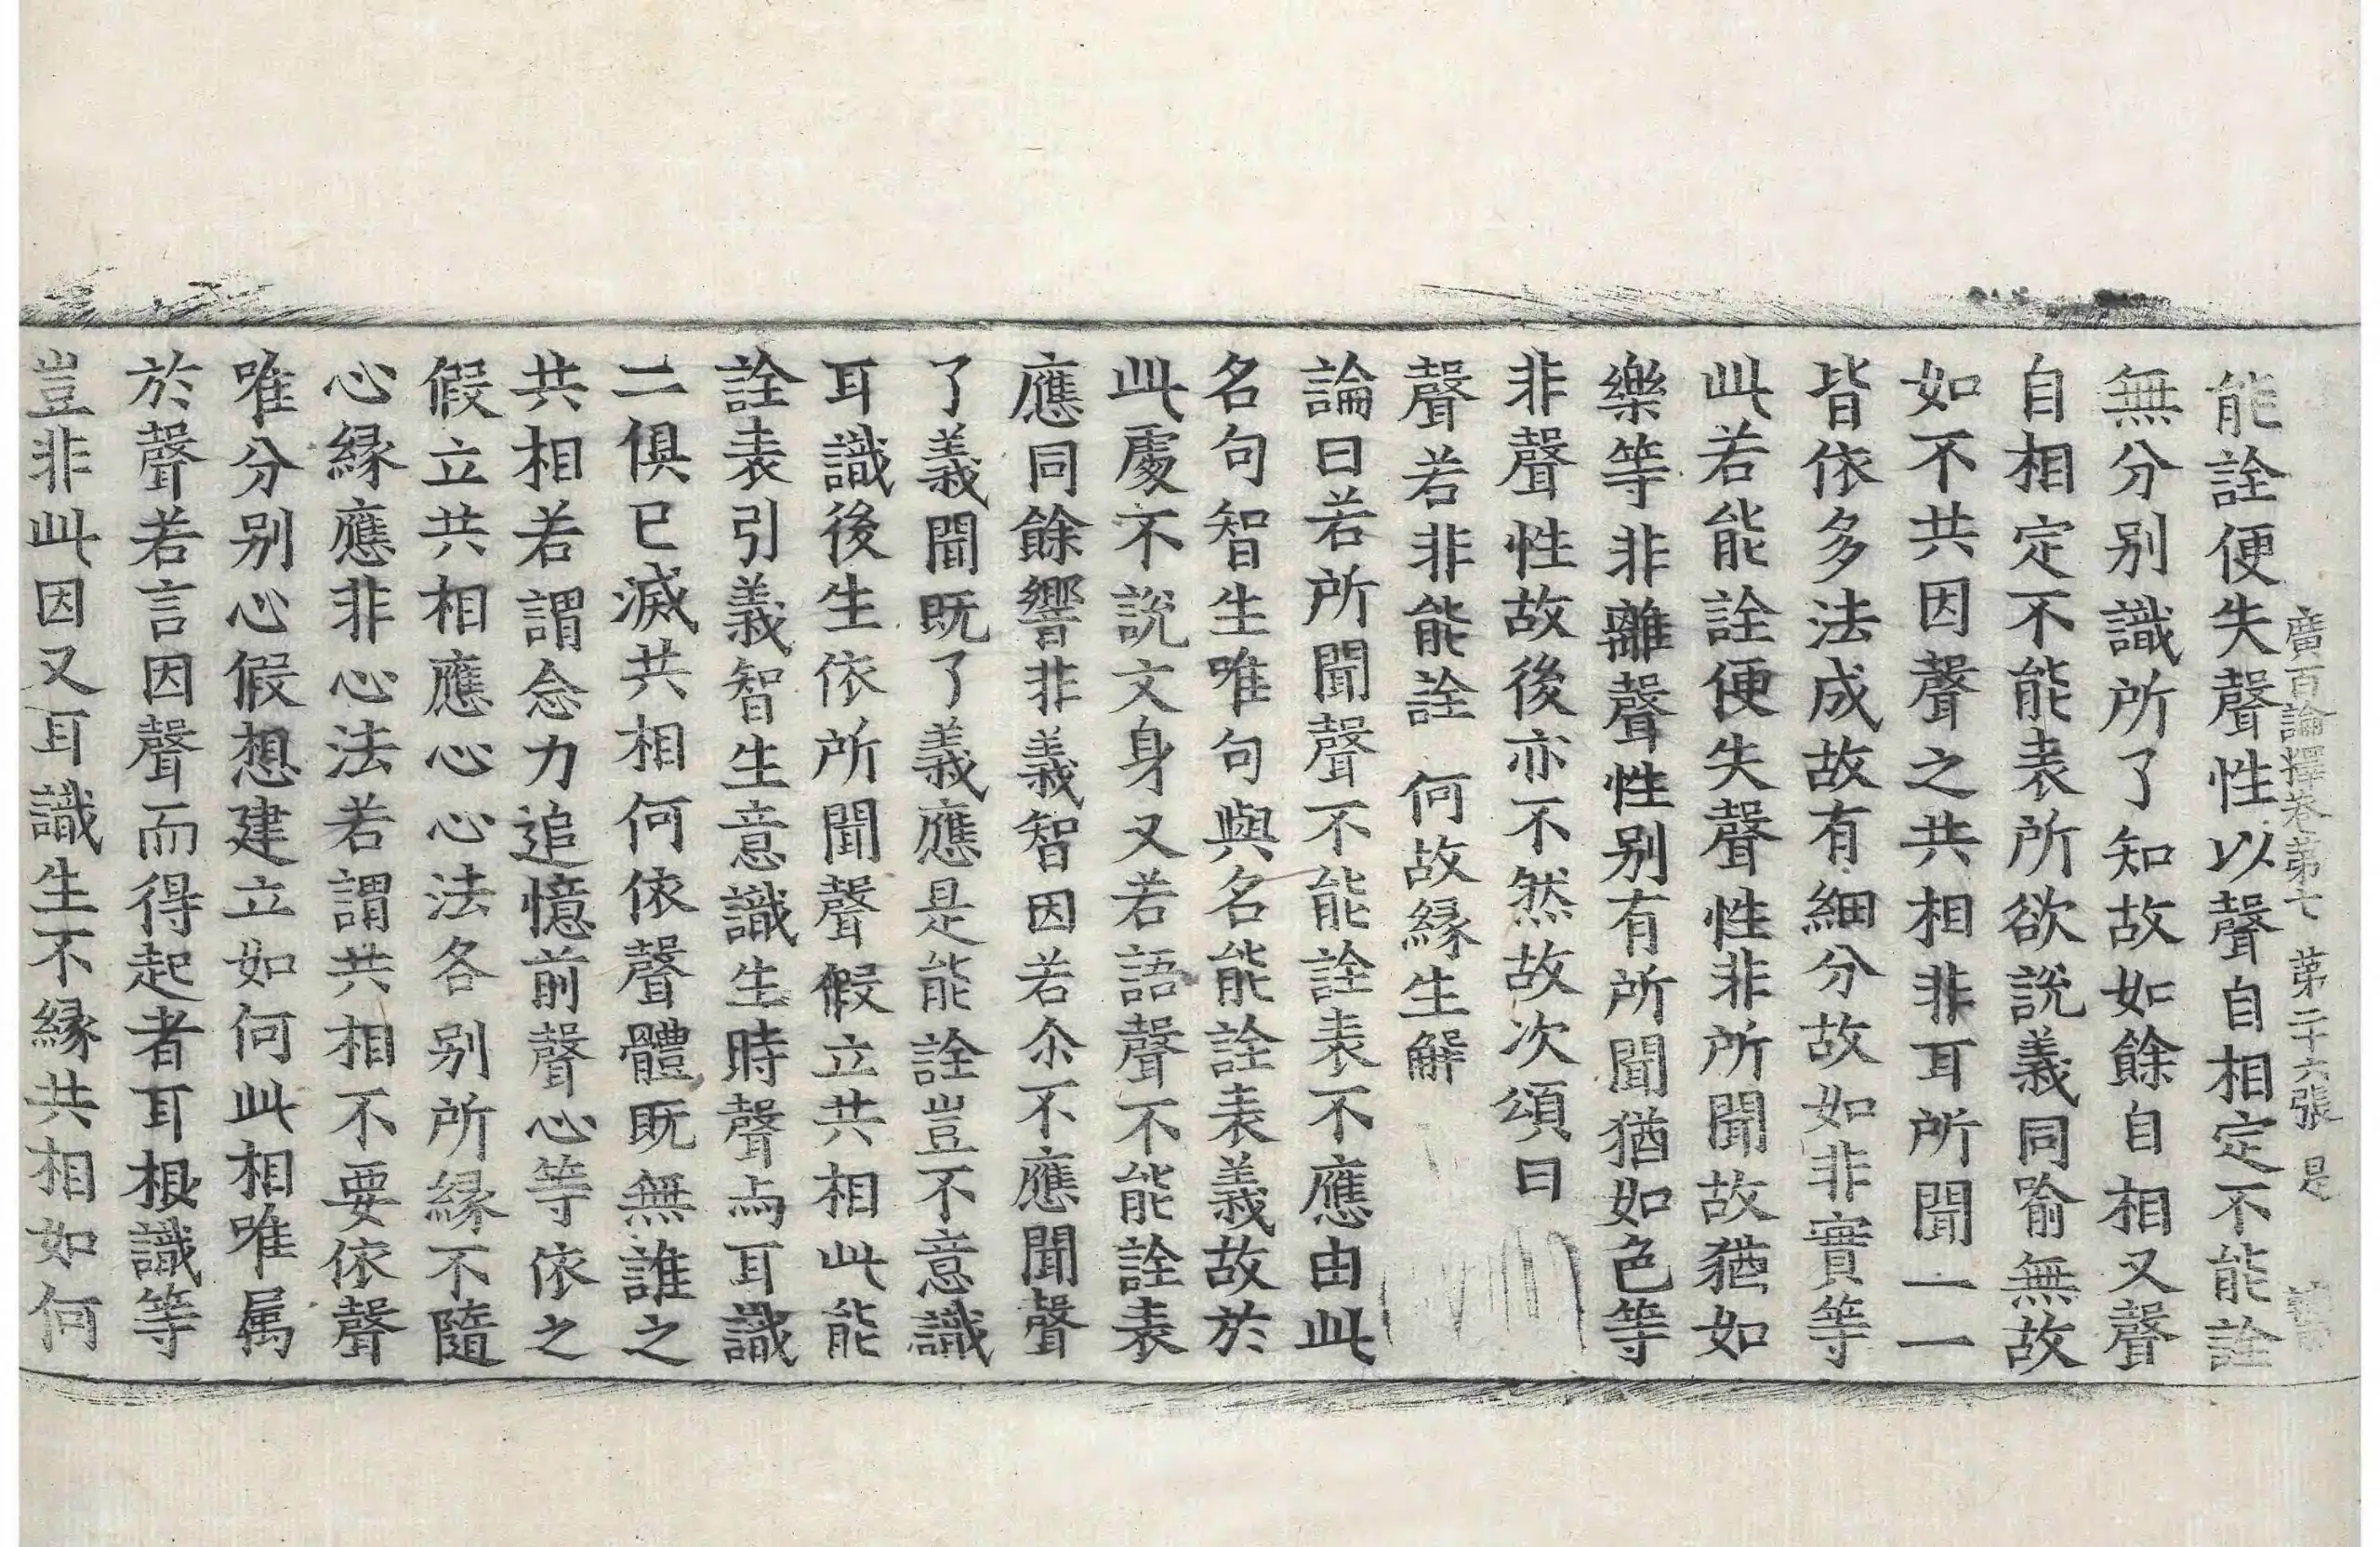 廣百論釋卷第七 第二十六張 是
能詮便失聲性以聲自相定不能詮
無分別識所了知故如餘自相又聲
自相定不能表所欲說義同喻無故
如不共因聲之共相非耳所聞一一
皆依多法成故有細分故如非實等
此若能詮便失聲性非所聞故猶如
樂等非離聲性別有所聞猶如色等
非聲性故後亦不然故次頌曰
聲若非能詮 何故緣生解
論曰若所聞聲不能詮表不應由此
名句智生唯句與名能詮表義故於
此處不說文身又若語聲不能詮表
應同餘響非義智因若尒不應聞聲
了義聞既了義應是能詮豈不意識
耳識後生依所聞聲假立共相此能
詮表引義智生意識生時聲與耳識
二俱已滅共相何依聲體既無誰之
共相若謂念力追憶前聲心等依之
假立共相應心心法各別所緣不隨
心緣應非心法若謂共相不要依聲
唯分別心假想建立如何此相唯属
於聲若言因聲而得起者耳根識等
豈非此因又耳識生不緣共相如何